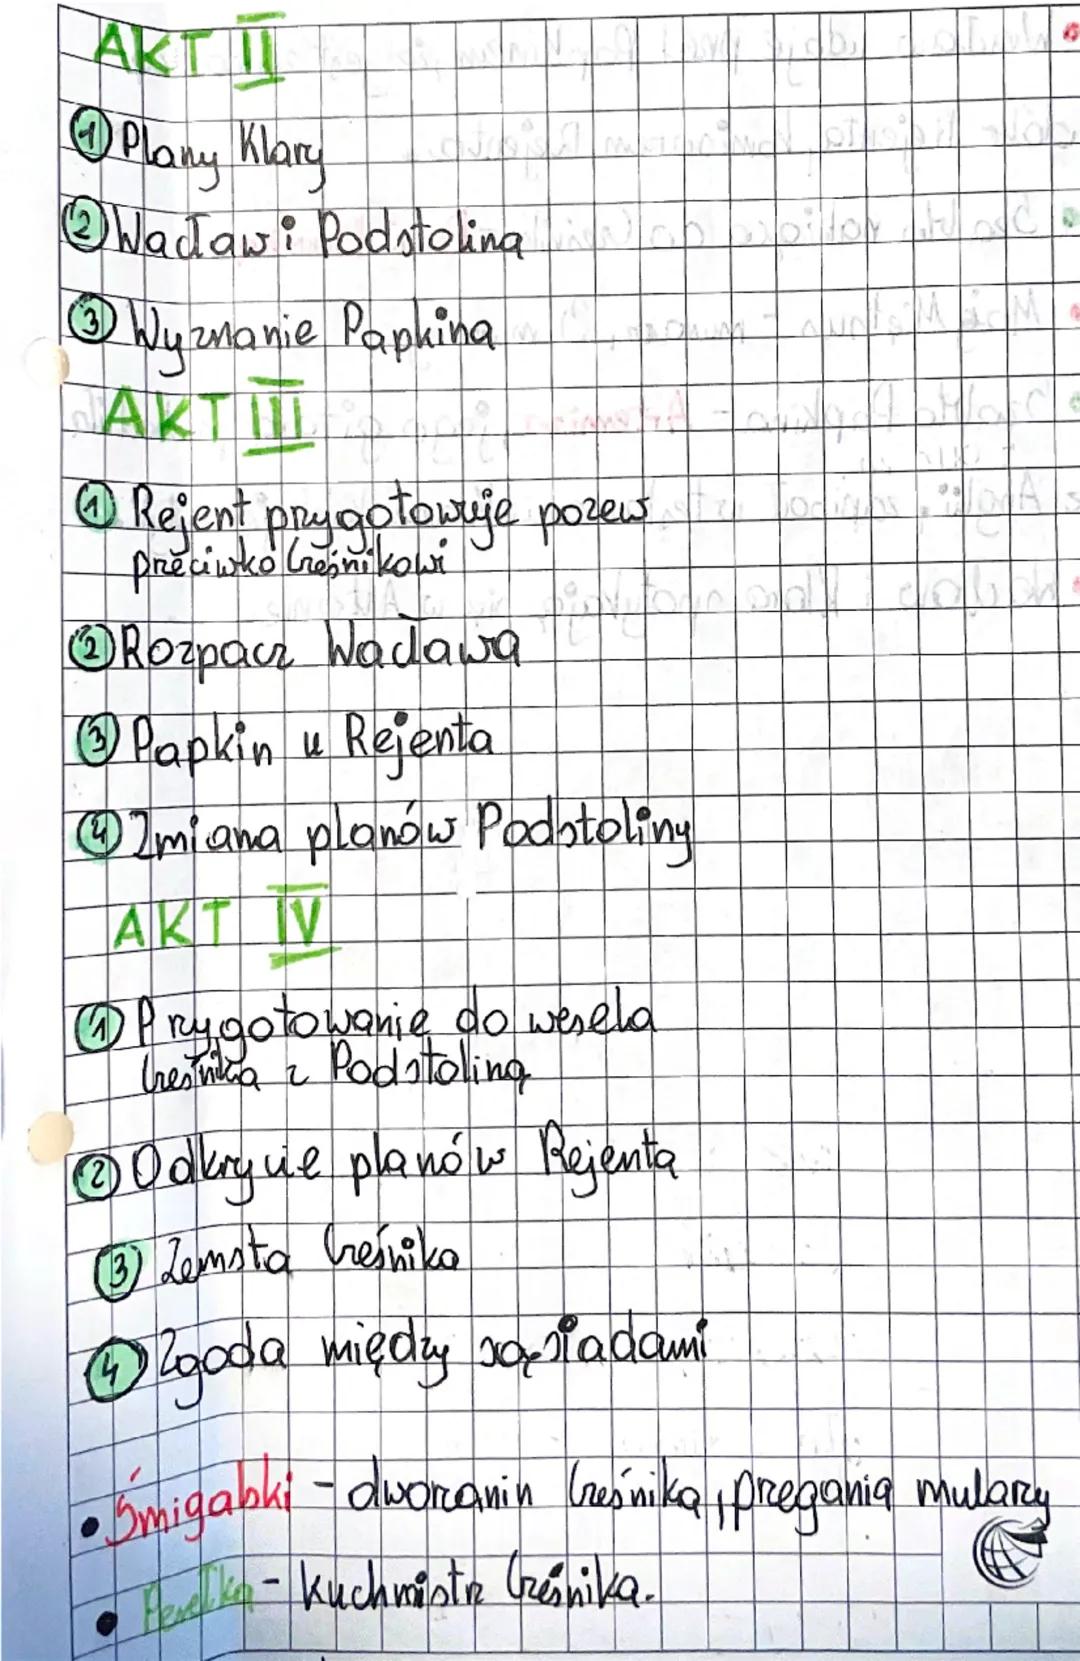 AKT II
1 Plany Klary
2 Wacław i Podstolina
3 Wyznanie Papkina
AKT III
1 Rejent przygotowuje pozew
przeciwko Cześnikowi
2 Rozpacz Wacława
3 Papkin u Rejenta
4 Zmiana planów Podstoliny
AKT IV
1 Przygotowanie do wesela
Cześnika z Podstoliną
2 Odkrycie planów Rejenta
3 Zemsta Cześnika
4 Zgoda między sąsiadami
• Śmigalski - dworzanin Cześnika, przegania mularzy
• Perełka - kuchmistrz Cześnika.